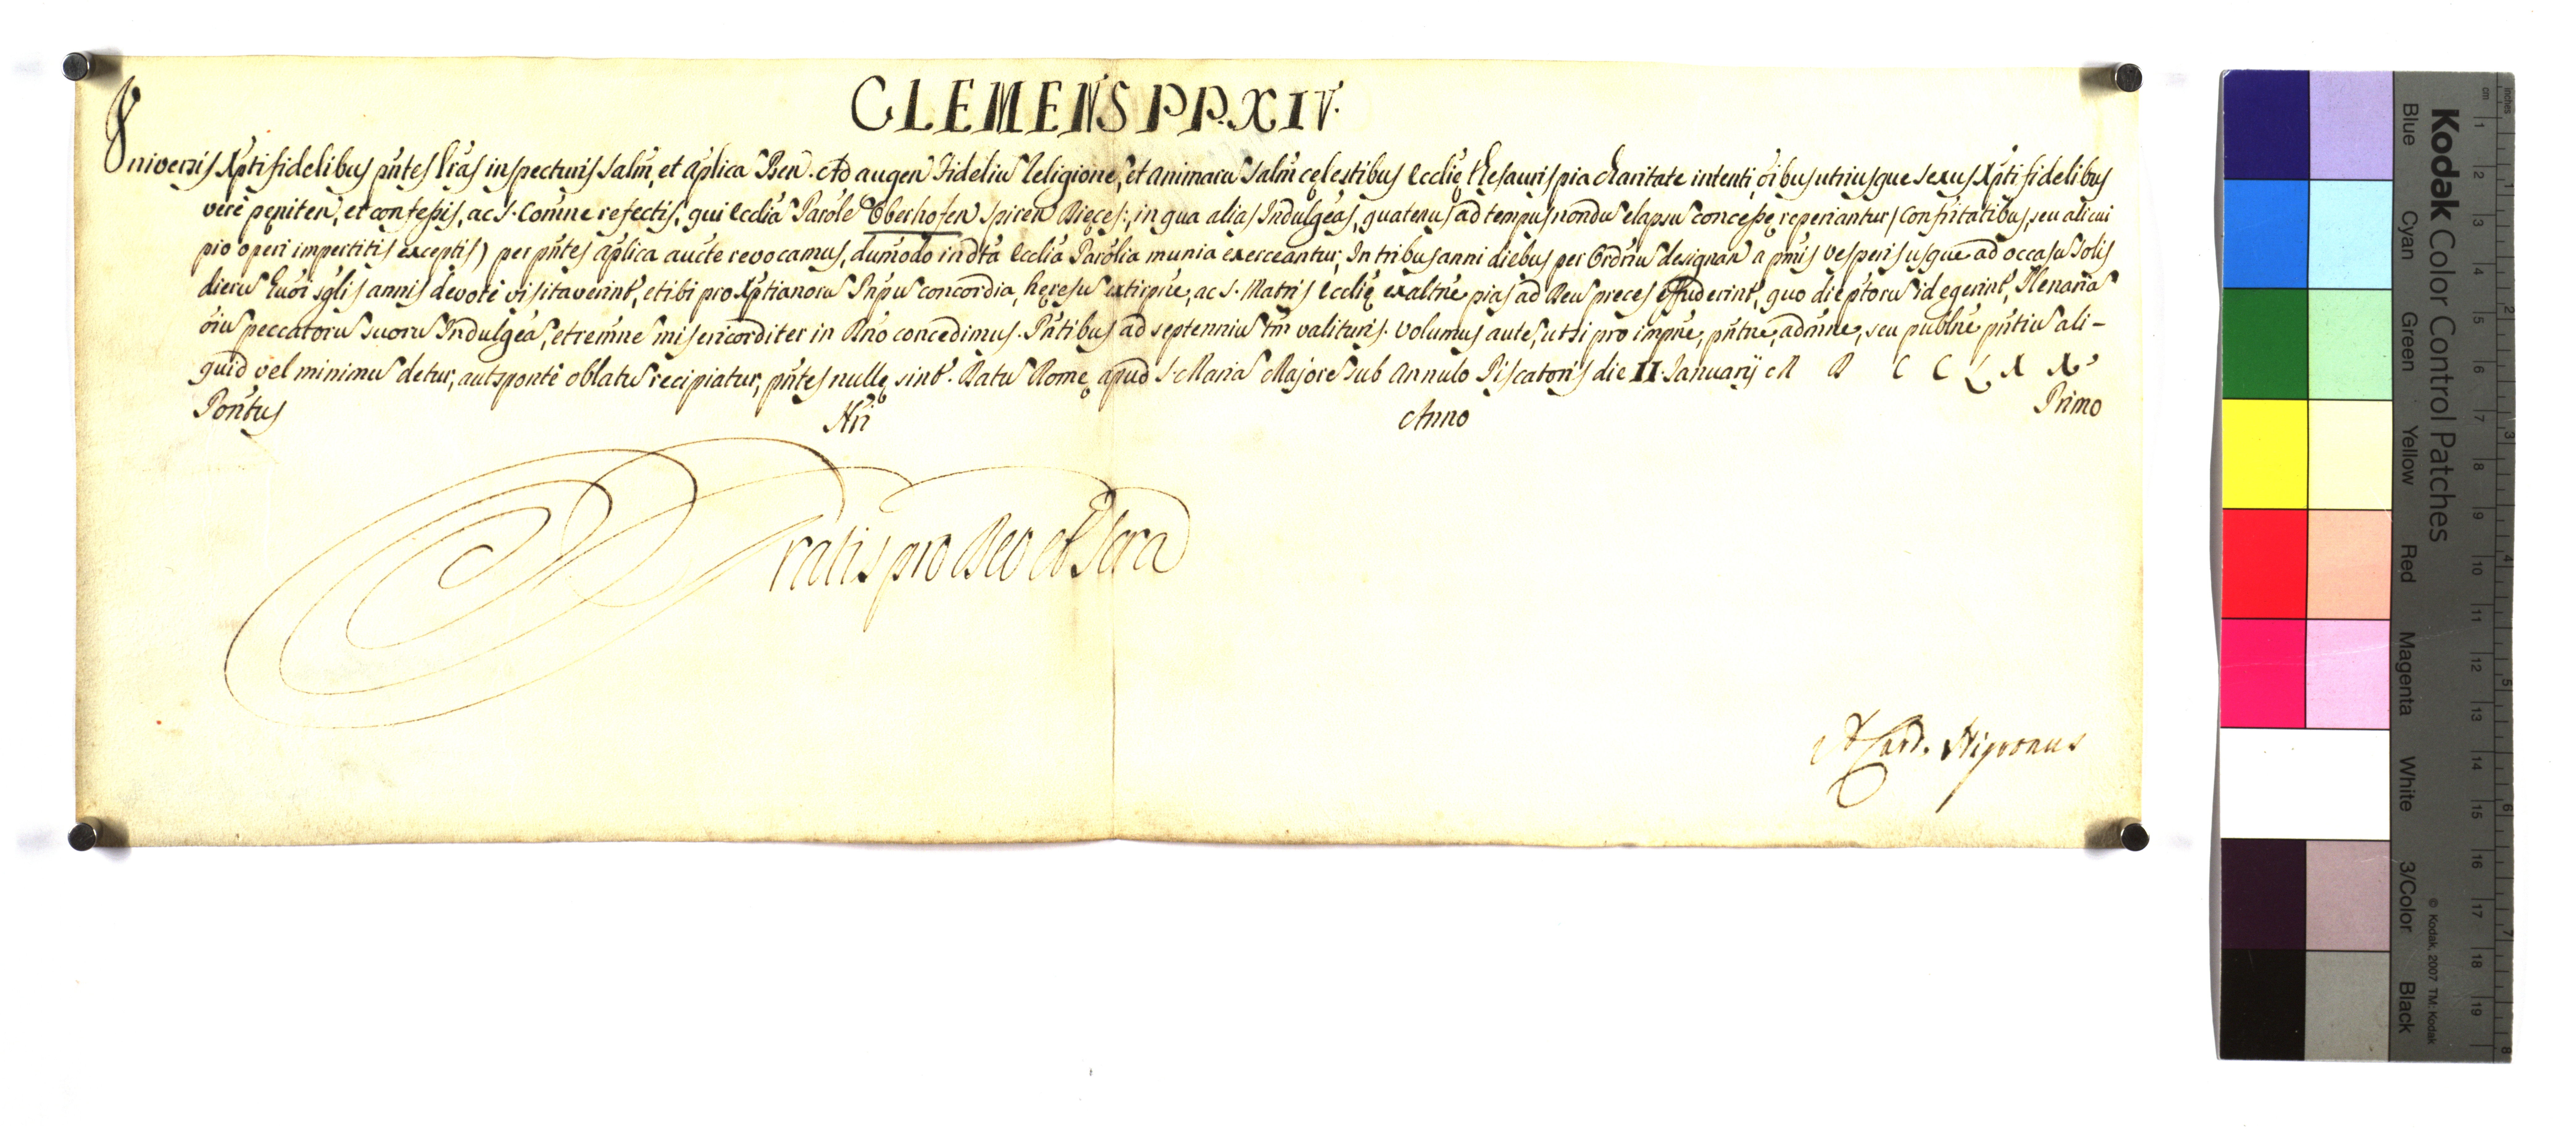 CLEMENS PP. XIV.
Universis Xpti fidelibus pñtes Lr̃as inspecturis Salm̃, et Aplica Ben. Ad augen Fideliu Religione, et animaru Salm̃ cęlestibus Ecclię Thesauris pia charitate intenti, oĩbus utriusque sexus Xpti fidelibus
verè pęniten, et confessis, ac S. Comne refectis, qui Ecclia Parõle Oberhofen Spiren Dięces:, in qua alias Indulgeas, quatenus ad tempus nondu elapsu concesse reperiantur (Confritatibus, seu alicui
pio operi impertitis exceptis) per pñtes aplica aucte revocamus, dumodo in dta Ecclia Parõlia munia exerceantur, In tribus anni diebus per Ordriu designan a pmis Vesperis usque ad occasu Solis
dieru huõi sglis annis devotè visitaverint, et ibi pro Xptianoru Pnpu concordia, hęresu extirpne, ac S. Matris Ecclię exaltne pias ad Deu preces effuderint, quo die ptoru id egerint, Plenaria
oiu peccatoru suoru Indulgea, et remne misericorditer in Dño concedimus. Pñtibus ad septenniu tm̃ valituris. Volumus aute, ut si pro impne, pñtne, admne, seu publne pñtiu ali-
quid vel minimu detur, aut spontè oblatu recipiatur, pñtes nullę sint. Datu Romę apud S. Maria Majore sub Annulo Piscatoris die II Januarij M D C C L X X
Pontus Nri Anno Primo
Gratis pro Deo et Scra
A. Card. Nigronus
Kodak Color Control Patches
Blue Cyan Green Yellow Red Magenta White 3/Color Black
© Kodak, 2007 TM: Kodak
inches 1 2 3 4 5 6 7 8
cm 1 2 3 4 5 6 7 8 9 10 11 12 13 14 15 16 17 18 19